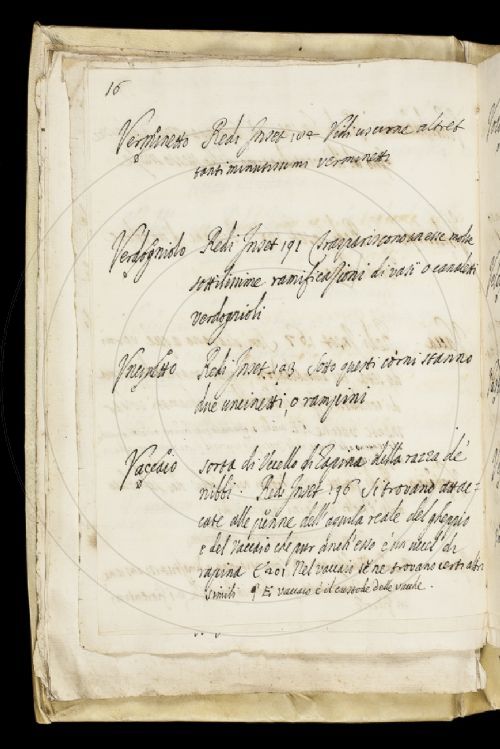 16
Verminetto Redi Inset 184 Vidi uscirne altret
tanti minutissimi verminetti
Verdogniolo Redi Inset 191 traspariscono
sottilissime ramificazioni di vasi o canaletti
verdognioli
Redi Inset 193 Sotto questi corni stanno
due uncinetti, o rampini
sorta di Uccello di Rapina della razza de
nibbi. Redi Inset 196 Si trovano attac-
cate alle penne dell'aquila reale del gheppio
e del che pur anch' esso è un di
rapina Nel se ne trovano cert altri
simili è il custode delle vacche.